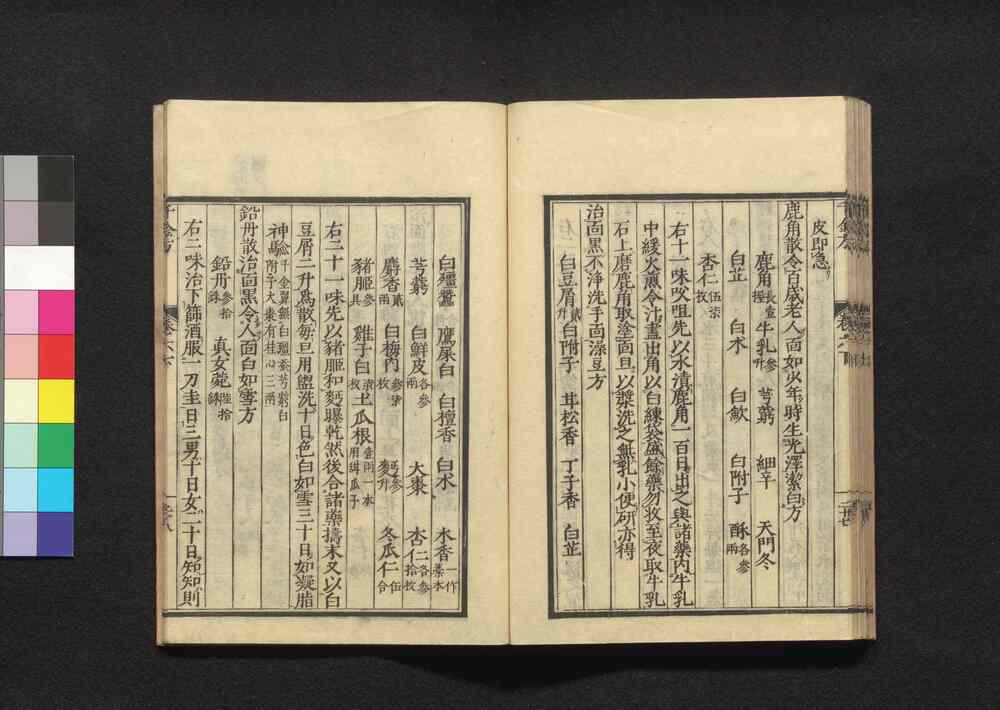 皮即急
鹿角散令百歲老人面如少年時生光澤潔白方
鹿角長壹握 牛乳參升 芎藭 細辛 天門冬
白芷 白朮 白斂 白附子 酥各參兩
杏仁伍柒枚
右十一味㕮咀先以水漬鹿角一百日出之與諸藥內牛乳
中緩火煎令汁盡出角以白練袋盛餘藥勿收至夜取牛乳
石上磨鹿角取塗面旦以漿洗之無乳小便研亦得
治面黑不淨洗手面澡豆方
白豆屑貳升 白附子 甘松香 丁子香 白芷
白殭蠶 鷹屎白 白檀香 白朮 木香一作藁本
芎藭 白鮮皮各參兩 大棗 杏仁各參拾枚
麝香貳兩 白梅肉參柒枚 麪參升 冬瓜仁伍合
豬胵參具 雞子白柒枚 土瓜根壹兩一本用絲瓜子
右二十一味先以豬胵和麪曝乾然後合諸藥擣末又以白
豆屑二升爲散每旦用盥洗十日色白如雪三十日如凝脂
神驗千金翼無白殭蠶芎藭白附子大棗有桂心三兩
鉛丹散治面黑令人面白如雪方
鉛丹參拾銖 真女菀陸拾銖
右二味治下篩酒服一刀圭日三男十日女二十日知知則
千金方
卷六
二十七